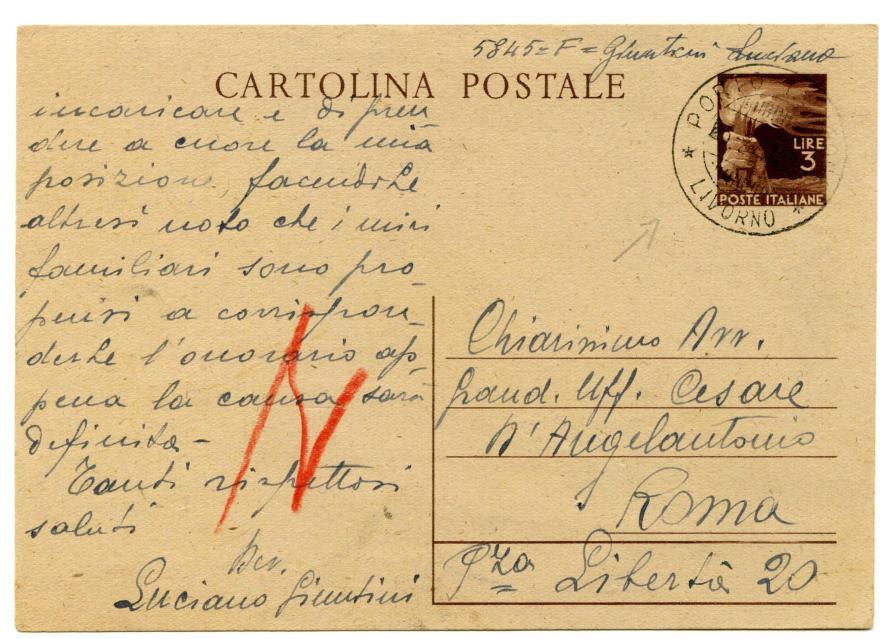 5845 = F = Giuntini Luciano
CARTOLINA POSTALE
incaricare e di pren
dere a cuore la mia
posizione, facendole
altresì noto che i miei
familiari sono pro
pensi a corrispon_
derle l'onorario ap
pena la causa sarà
definita -
Tanti rispettosi
saluti
Dev.
Luciano Giuntini
PORTO
LIVORNO
LIRE
3
POSTE ITALIANE
Chiarissimo Avv.
Grand. Uff. Cesare
D'Angelantonio
Roma
P.za Libertà 20